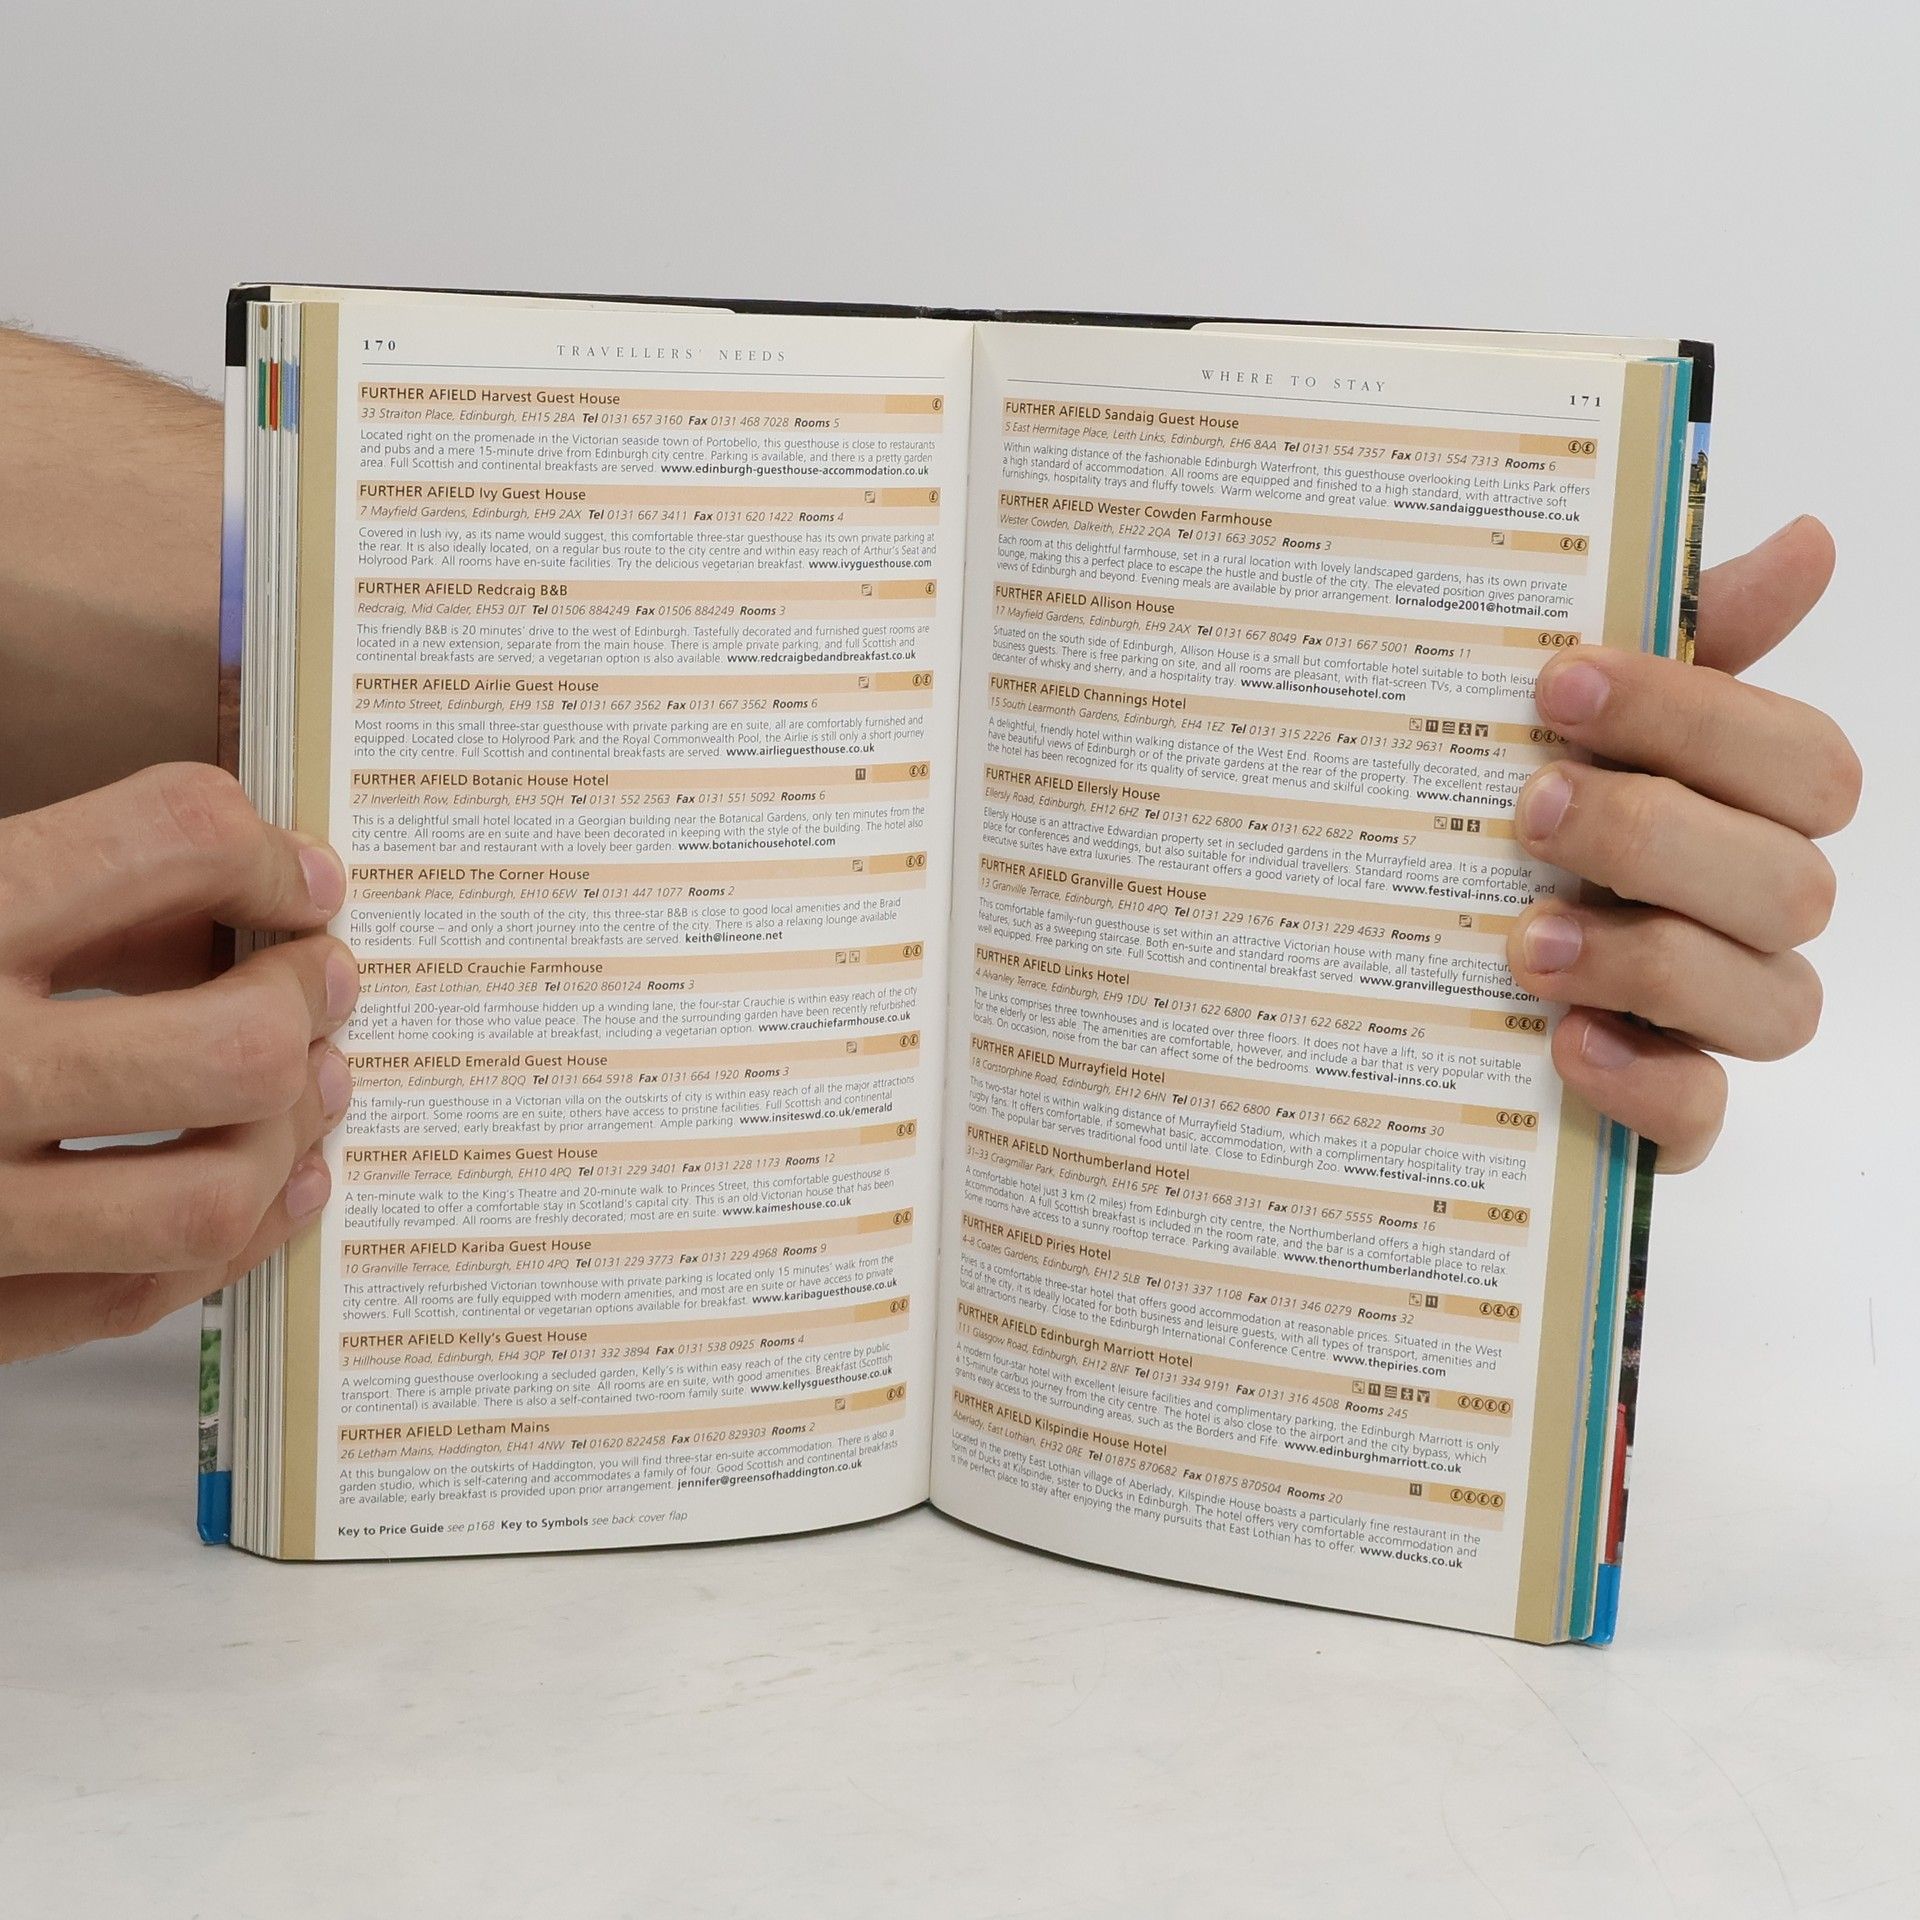 170
TRAVELLERS' NEEDS
FURTHER AFIELD Harvest Guest House
33 Straiton Place, Edinburgh, EH15 2BA Tel 0131 657 3160 Fax 0131 468 7028 Rooms 5
Located right on the promenade in the Victorian seaside town of Portobello, this guesthouse is close to restaurants
and pubs and a mere 15-minute drive from Edinburgh city centre. Parking is available, and there is a pretty garden
area. Full Scottish and continental breakfasts are served. www.edinburgh-guesthouse-accommodation.co.uk
FURTHER AFIELD Ivy Guest House
7 Mayfield Gardens, Edinburgh, EH9 2AX Tel 0131 667 3411 Fax 0131 620 1422 Rooms 4
Covered in lush ivy, as its name would suggest, this comfortable three-star guesthouse has its own private parking at
the rear. It is also ideally located, on a regular bus route to the city centre and within easy reach of Arthur's Seat and
Holyrood Park. All rooms have en-suite facilities. Try the delicious vegetarian breakfast. www.ivyguesthouse.com
FURTHER AFIELD Redcraig B&B
Redcraig, Mid Calder, EH53 0JT Tel 01506 884249 Fax 01506 884249 Rooms 3
This friendly B&B is 20 minutes' drive to the west of Edinburgh. Tastefully decorated and furnished guest rooms are
located in a new extension, separate from the main house. There is ample private parking, and full Scottish and
continental breakfasts are served; a vegetarian option is also available. www.redcraigbedandbreakfast.co.uk
FURTHER AFIELD Airlie Guest House
29 Minto Street, Edinburgh, EH9 1SB Tel 0131 667 3562 Fax 0131 667 3562 Rooms 6
Most rooms in this small three-star guesthouse with private parking are en suite, all are comfortably furnished and
equipped. Located close to Holyrood Park and the Royal Commonwealth Pool, the Airlie is still only a short journey
into the city centre. Full Scottish and continental breakfasts are served. www.airlieguesthouse.co.uk
FURTHER AFIELD Botanic House Hotel
27 Inverleith Row, Edinburgh, EH3 5QH Tel 0131 552 2563 Fax 0131 551 5092 Rooms 6
This is a delightful small hotel located in a Georgian building near the Botanical Gardens, only ten minutes from the
city centre. All rooms are en suite and have been decorated in keeping with the style of the building. The hotel also
has a basement bar and restaurant with a lovely beer garden. www.botanichousehotel.com
FURTHER AFIELD The Corner House
1 Greenbank Place, Edinburgh, EH10 6EW Tel 0131 447 1077 Rooms 2
Conveniently located in the south of the city, this three-star B&B is close to good local amenities and the Braid
Hills golf course – and only a short journey into the centre of the city. There is also a relaxing lounge available
to residents. Full Scottish and continental breakfasts are served. keith@lineone.net
URTHER AFIELD Crauchie Farmhouse
st Linton, East Lothian, EH40 3EB Tel 01620 860124 Rooms 3
delightful 200-year-old farmhouse hidden up a winding lane, the four-star Crauchie is within easy reach of the city
and yet a haven for those who value peace. The house and the surrounding garden have been recently refurbished.
Excellent home cooking is available at breakfast, including a vegetarian option. www.crauchiefarmhouse.co.uk
FURTHER AFIELD Emerald Guest House
Gilmerton, Edinburgh, EH17 8QQ Tel 0131 664 5918 Fax 0131 664 1920 Rooms 3
This family-run guesthouse in a Victorian villa on the outskirts of city is within easy reach of all the major attractions
and the airport. Some rooms are en suite, others have access to pristine facilities. Full Scottish and continental
breakfasts are served; early breakfast by prior arrangement. Ample parking. www.insiteswd.co.uk/emerald
FURTHER AFIELD Kaimes Guest House
12 Granville Terrace, Edinburgh, EH10 4PQ Tel 0131 229 3401 Fax 0131 228 1173 Rooms 12
A ten-minute walk to the King's Theatre and 20-minute walk to Princes Street, this comfortable guesthouse is
ideally located to offer a comfortable stay in Scotland's capital city. This is an old Victorian house that has been
beautifully revamped. All rooms are freshly decorated; most are en suite. www.kaimeshouse.co.uk
FURTHER AFIELD Kariba Guest House
10 Granville Terrace, Edinburgh, EH10 4PQ Tel 0131 229 3773 Fax 0131 229 4968 Rooms 9
This attractively refurbished Victorian townhouse with private parking is located only 15 minutes' walk from the
city centre. All rooms are fully equipped with modern amenities, and most are en suite or have access to private
showers. Full Scottish, continental or vegetarian options available for breakfast. www.karibaguesthouse.co.uk
FURTHER AFIELD Kelly's Guest House
3 Hillhouse Road, Edinburgh, EH4 3QP Tel 0131 332 3894 Fax 0131 538 0925 Rooms 4
A welcoming guesthouse overlooking a secluded garden, Kelly's is within easy reach of the city centre by public
transport. There is ample private parking on site. All rooms are en suite, with good amenities. Breakfast (Scottish
or continental) is available. There is also a self-contained two-room family suite. www.kellysguesthouse.co.uk
FURTHER AFIELD Letham Mains
26 Letham Mains, Haddington, EH41 4NW Tel 01620 822458 Fax 01620 829303 Rooms 2
At this bungalow on the outskirts of Haddington, you will find three-star en-suite accommodation. There is also a
garden studio, which is self-catering and accommodates a family of four. Good Scottish and continental breakfasts
are available; early breakfast is provided upon prior arrangement. jennifer@greensofhaddington.co.uk
Key to Price Guide see p168 Key to Symbols see back cover flap
WHERE TO STAY
171
FURTHER AFIELD Sandaig Guest House
5 East Hermitage Place, Leith Links, Edinburgh, EH6 8AA Tel 0131 554 7357 Fax 0131 554 7313 Rooms 6
Within walking distance of the fashionable Edinburgh Waterfront, this guesthouse overlooking Leith Links Park offers
a high standard of accommodation. All rooms are equipped and finished to a high standard, with attractive soft
furnishings, hospitality trays and fluffy towels. Warm welcome and great value. www.sandaigguesthouse.co.uk
FURTHER AFIELD Wester Cowden Farmhouse
Wester Cowden, Dalkeith, EH22 2QA Tel 0131 663 3052 Rooms 3
Each room at this delightful farmhouse, set in a rural location with lovely landscaped gardens, has its own private
lounge, making this a perfect place to escape the hustle and bustle of the city. The elevated position gives panoramic
views of Edinburgh and beyond. Evening meals are available by prior arrangement. lornalodge2001@hotmail.com
FURTHER AFIELD Allison House
17 Mayfield Gardens, Edinburgh, EH9 2AX Tel 0131 667 8049 Fax 0131 667 5001 Rooms 11
Situated on the south side of Edinburgh, Allison House is a small but comfortable hotel suitable to both leisu
business guests. There is free parking on site, and all rooms are pleasant, with flat-screen TVs, a complimenta
decanter of whisky and sherry, and a hospitality tray. www.allisonhousehotel.com
FURTHER AFIELD Channings Hotel
15 South Learmonth Gardens, Edinburgh, EH4 1EZ Tel 0131 315 2226 Fax 0131 332 9631 Rooms 41
A delightful, friendly hotel within walking distance of the West End. Rooms are tastefully decorated, and man
have beautiful views of Edinburgh or of the private gardens at the rear of the property. The excellent restaur
the hotel has been recognized for its quality of service, great menus and skilful cooking. www.channings.
FURTHER AFIELD Ellersly House
Ellersly Road, Edinburgh, EH12 6HZ Tel 0131 622 6800 Fax 0131 622 6822 Rooms 57
Ellersly House is an attractive Edwardian property set in secluded gardens in the Murrayfield area. It is a popular
place for conferences and weddings, but also suitable for individual travellers. Standard rooms are comfortable, and
executive suites have extra luxuries. The restaurant offers a good variety of local fare. www.festival-inns.co.uk
FURTHER AFIELD Granville Guest House
13 Granville Terrace, Edinburgh, EH10 4PQ Tel 0131 229 1676 Fax 0131 229 4633 Rooms 9
This comfortable family-run guesthouse is set within an attractive Victorian house with many fine architectur
features, such as a sweeping staircase. Both en-suite and standard rooms are available, all tastefully furnished
well equipped. Free parking on site. Full Scottish and continental breakfast served. www.granvilleguesthouse.com
FURTHER AFIELD Links Hotel
4 Alvanley Terrace, Edinburgh, EH9 1DU Tel 0131 622 6800 Fax 0131 622 6822 Rooms 26
The Links comprises three townhouses and is located over three floors. It does not have a lift, so it is not suitable
for the elderly or less able. The amenities are comfortable, however, and include a bar that is very popular with the
locals. On occasion, noise from the bar can affect some of the bedrooms. www.festival-inns.co.uk
FURTHER AFIELD Murrayfield Hotel
18 Corstorphine Road, Edinburgh, EH12 6HN Tel 0131 662 6800 Fax 0131 662 6822 Rooms 30
This two-star hotel is within walking distance of Murrayfield Stadium, which makes it a popular choice with visiting
rugby fans. It offers comfortable, if somewhat basic, accommodation, with a complimentary hospitality tray in each
room. The popular bar serves traditional food until late. Close to Edinburgh Zoo. www.festival-inns.co.uk
FURTHER AFIELD Northumberland Hotel
31–33 Craigmillar Park, Edinburgh, EH16 5PE Tel 0131 668 3131 Fax 0131 667 5555 Rooms 16
A comfortable hotel just 3 km (2 miles) from Edinburgh city centre, the Northumberland offers a high standard of
accommodation. A full Scottish breakfast is included in the room rate, and the bar is a comfortable place to relax.
Some rooms have access to a sunny rooftop terrace. Parking available. www.thenorthumberlandhotel.co.uk
FURTHER AFIELD Piries Hotel
4–8 Coates Gardens, Edinburgh, EH12 5LB Tel 0131 337 1108 Fax 0131 346 0279 Rooms 32
Piries is a comfortable three-star hotel that offers good accommodation at reasonable prices. Situated in the West
End of the city, it is ideally located for both business and leisure guests, with all types of transport, amenities and
local attractions nearby. Close to the Edinburgh International Conference Centre. www.thepiries.com
FURTHER AFIELD Edinburgh Marriott Hotel
111 Glasgow Road, Edinburgh, EH12 8NF Tel 0131 334 9191 Fax 0131 316 4508 Rooms 245
A modern four-star hotel with excellent leisure facilities and complimentary parking, the Edinburgh Marriott is only
a 15-minute car/bus journey from the city centre. The hotel is also close to the airport and the city bypass, which
grants easy access to the surrounding areas, such as the Borders and Fife. www.edinburghmarriott.co.uk
FURTHER AFIELD Kilspindie House Hotel
Aberlady, East Lothian, EH32 0RE Tel 01875 870682 Fax 01875 870504 Rooms 20
Located in the pretty East Lothian village of Aberlady, Kilspindie House boasts a particularly fine restaurant in the
form of Ducks at Kilspindie, sister to Ducks in Edinburgh. The hotel offers very comfortable accommodation and
is the perfect place to stay after enjoying the many pursuits that East Lothian has to offer. www.ducks.co.uk